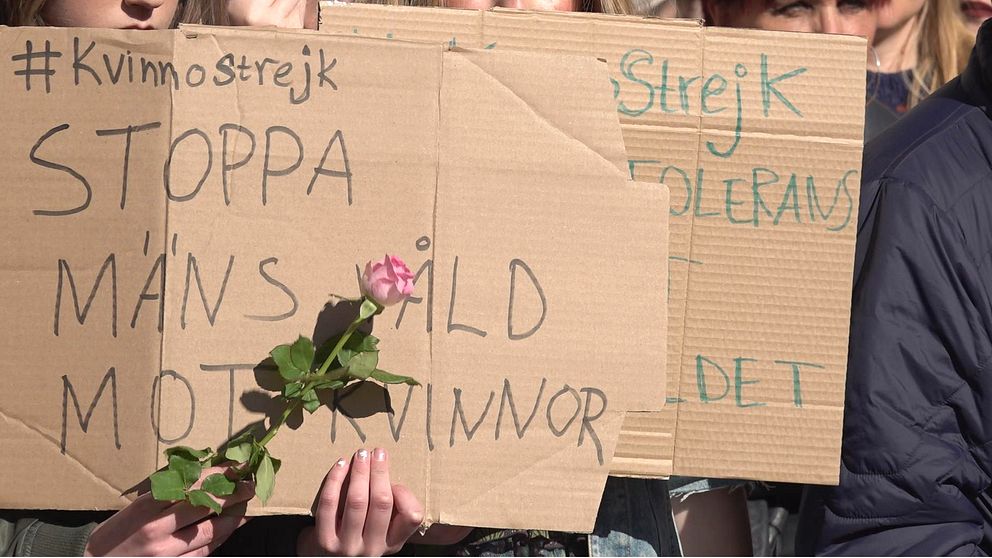 #Kvinnostrejk
STOPPA
MÄNS VÅLD
MOT KVINNOR
Strejk
TOLERANS